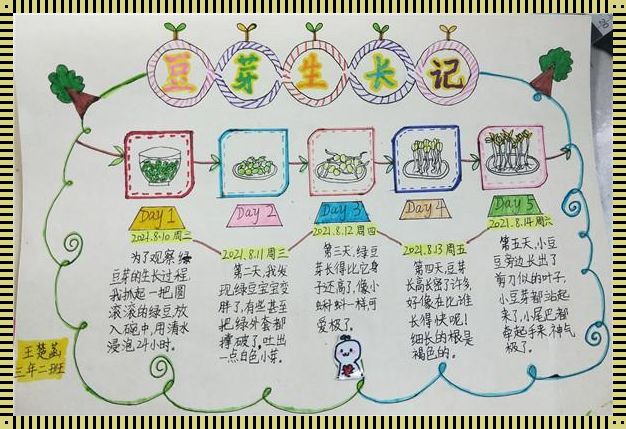 豆芽生长记
Day 1
2021.8.10 周二
为了观察绿
豆芽的生长过程
我抓起一把圆
滚滚的绿豆放
入碗中,用清水
浸泡24小时。
Day 2
2021.8.11 周三
第二天,我发
现绿豆宝宝变
胖了,有些甚至
把绿外套都
撑破了。吐出
一点白色小芽。
Day 3
2021.8.12 周四
第三天,绿豆
芽长得比它身
子还高了,像小
蝌蚪一样可
爱极了。
Day 4
2021.8.13 周五
第四天,豆芽
长高长密了许多,
好像在比谁
长得快呢!
细长的根是
褐色的。
Day 5
2021.8.14 周六
第五天,小豆
豆旁边长出了
剪刀似的叶子,
小豆芽都站起
来了,小尾巴都
牵起手来,神气
极了。
三年二班